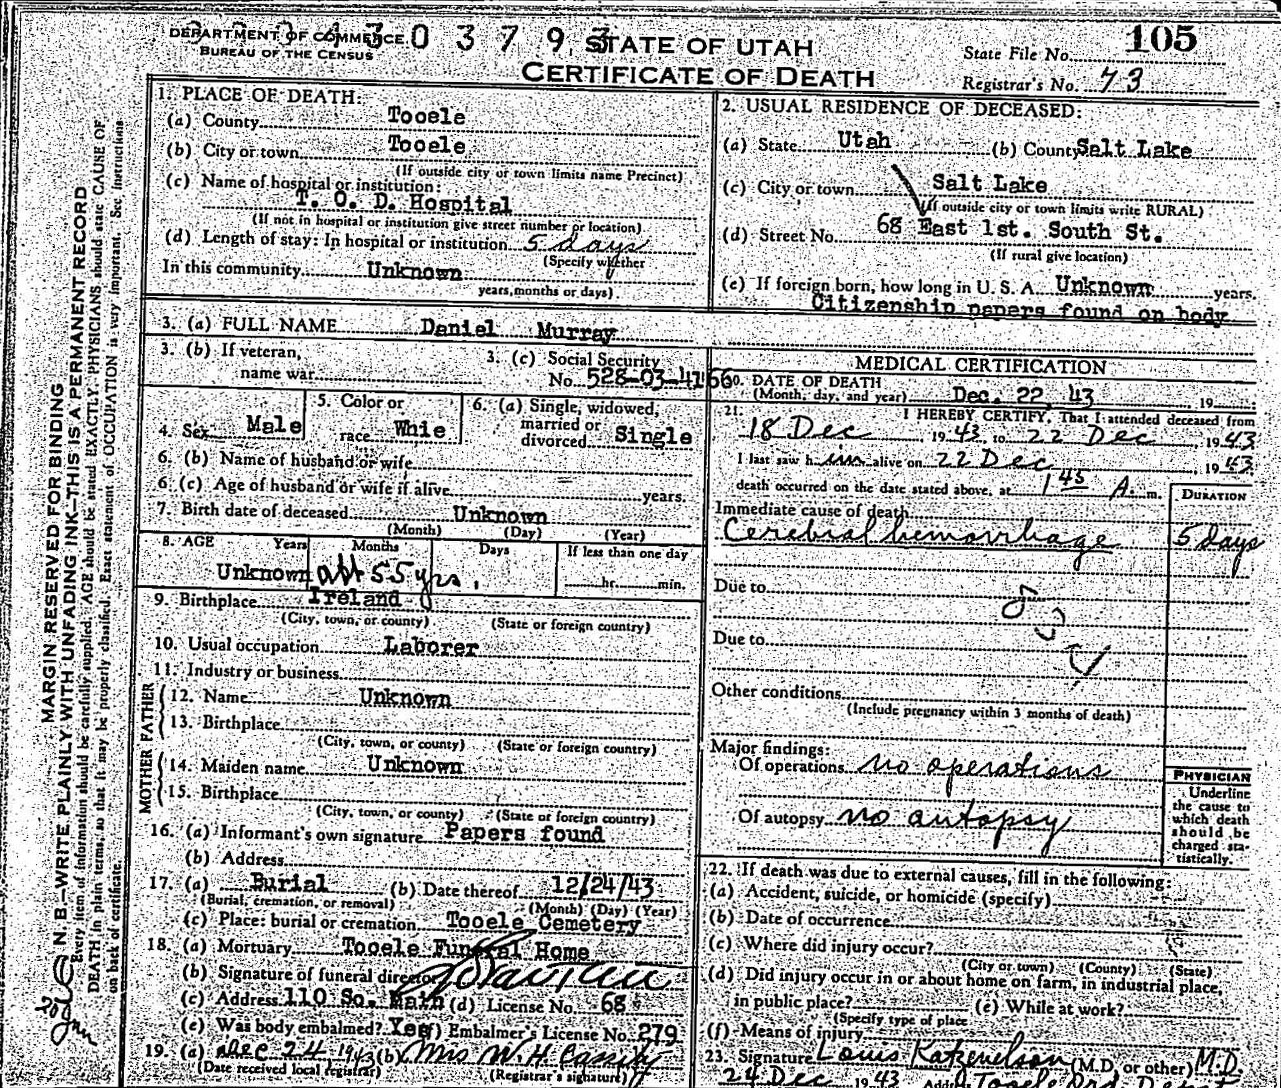 DEPARTMENT OF COMMERCE
BUREAU OF THE CENSUS
STATE OF UTAH
CERTIFICATE OF DEATH
State File No. 105
Registrar's No. 73
MARGIN RESERVED FOR BINDING
N. B.—WRITE PLAINLY WITH UNFADING INK—THIS IS A PERMANENT RECORD
Every item of information should be carefully supplied. AGE should be stated EXACTLY. PHYSICIANS should state CAUSE OF
DEATH in plain terms, so that it may be properly classified. Exact statement of OCCUPATION is very important. See instructions
on back of certificate.
1. PLACE OF DEATH:
(a) County Tooele
(b) City or town Tooele
(If outside city or town limits name Precinct)
(c) Name of hospital or institution:
T. O. D. Hospital
(If not in hospital or institution give street number or location)
(d) Length of stay: In hospital or institution 5 days
(Specify whether
In this community Unknown
years, months or days)
2. USUAL RESIDENCE OF DECEASED:
(a) State Utah (b) County Salt Lake
(c) City or town Salt Lake
(If outside city or town limits write RURAL)
(d) Street No. 68 East 1st. South St.
(If rural give location)
(e) If foreign born, how long in U. S. A. Unknown years.
Citizenship papers found on body
3. (a) FULL NAME Daniel Murray
3. (b) If veteran,
name war
3. (c) Social Security
No. 528-03-4166
4. Sex Male
5. Color or
race Whie
6. (a) Single, widowed,
married or
divorced Single
6. (b) Name of husband or wife
6. (c) Age of husband or wife if alive years.
7. Birth date of deceased Unknown
(Month) (Day) (Year)
8. AGE Years Months Days If less than one day
Unknown abt 55 yrs. hr. min.
9. Birthplace Ireland
(City, town, or county) (State or foreign country)
10. Usual occupation Laborer
11. Industry or business
FATHER
12. Name Unknown
13. Birthplace
(City, town, or county) (State or foreign country)
MOTHER
14. Maiden name Unknown
15. Birthplace
(City, town, or county) (State or foreign country)
16. (a) Informant's own signature Papers found
(b) Address
17. (a) Burial (b) Date thereof 12/24/43
(Burial, cremation, or removal) (Month) (Day) (Year)
(c) Place: burial or cremation Tooele Cemetery
18. (a) Mortuary Tooele Funeral Home
(b) Signature of funeral director
(c) Address 110 So. Main (d) License No. 68
(e) Was body embalmed? Yes (f) Embalmer's License No. 279
19. (a) Dec 24, 1943 (b) Mrs W. H. Cassity
(Date received local registrar) (Registrar's signature)
MEDICAL CERTIFICATION
20. DATE OF DEATH
(Month, day, and year) Dec. 22, 43 19
21. I HEREBY CERTIFY, That I attended deceased from
18 Dec 1943 to 22 Dec 1943
I last saw him alive on 22 Dec 1943
death occurred on the date stated above, at 1 45 A. m.
DURATION
Immediate cause of death
Cerebral hemorrhage 5 days
Due to
Due to
Other conditions
(Include pregnancy within 3 months of death)
Major findings:
Of operations no operations
Of autopsy no autopsy
PHYSICIAN
Underline
the cause to
which death
should be
charged sta-
tistically.
22. If death was due to external causes, fill in the following:
(a) Accident, suicide, or homicide (specify)
(b) Date of occurrence
(c) Where did injury occur?
(City or town) (County) (State)
(d) Did injury occur in or about home on farm, in industrial place,
in public place? (e) While at work?
(Specify type of place
(f) Means of injury
23. Signature Louis Katzenelson (M.D. or other) M.D.
24 Dec 1943